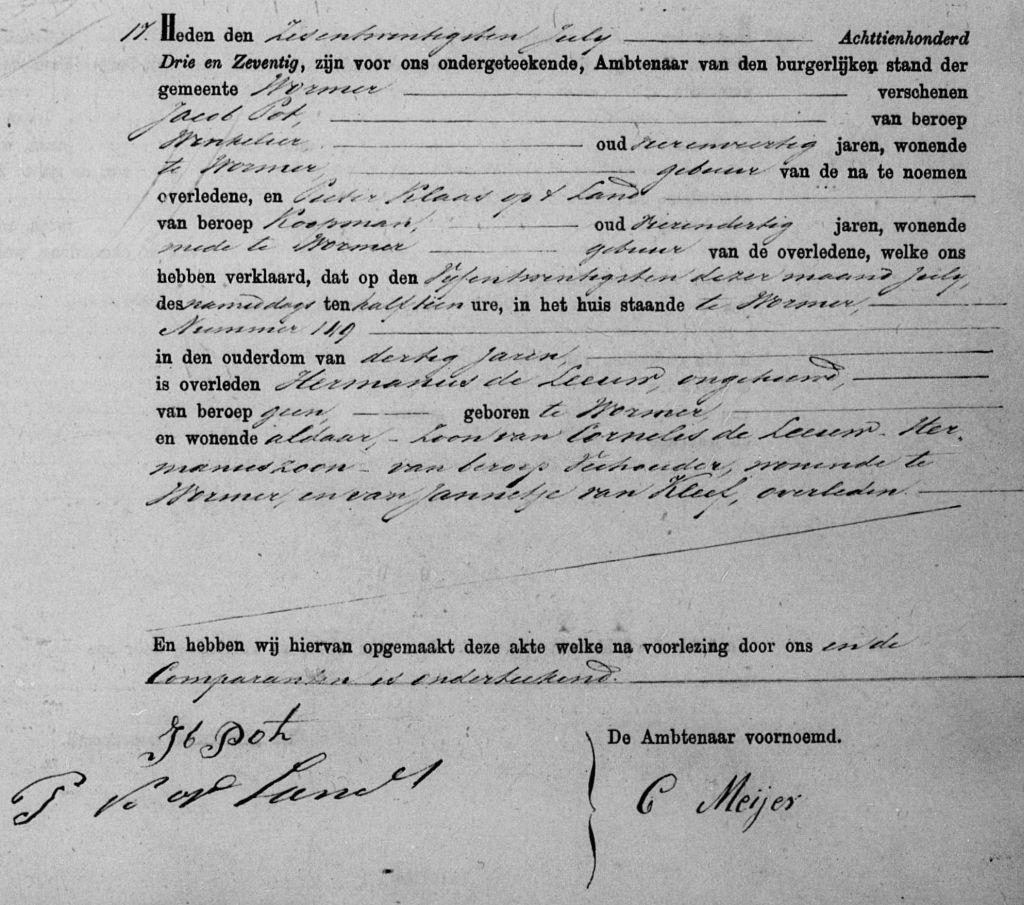 17. Heden den Zesentwintigsten July Achttienhonderd
Drie en Zeventig, zijn voor ons ondergeteekende, Ambtenaar van den burgerlijken stand der
gemeente Wormer verschenen
Jacob Pot, van beroep
Winkelier, oud vierenveertig jaren, wonende
te Wormer gebuur van de na te noemen
overledene, en Pieter Klaas op 't Land
van beroep Koopman, oud vierendertig jaren, wonende
mede te Wormer gebuur van de overledene, welke ons
hebben verklaard, dat op den Vijfentwintigsten dezer maand July,
des namiddags ten half tien ure, in het huis staande te Wormer,
Nummer 149
in den ouderdom van dertig Jaren,
is overleden Hermanus de Leeuw, ongehuwd,
van beroep geen, geboren te Wormer,
en wonende aldaar, - Zoon van Cornelis de Leeuw Her-
manuszoon - van beroep Veehouder, wonende te
Wormer, en van Jannetje van Kleef, overleden.
En hebben wij hiervan opgemaakt deze akte welke na voorlezing door ons en de
Comparanten is onderteekend.
Jb Pot
P K op Landt
De Ambtenaar voornoemd.
C Meijer